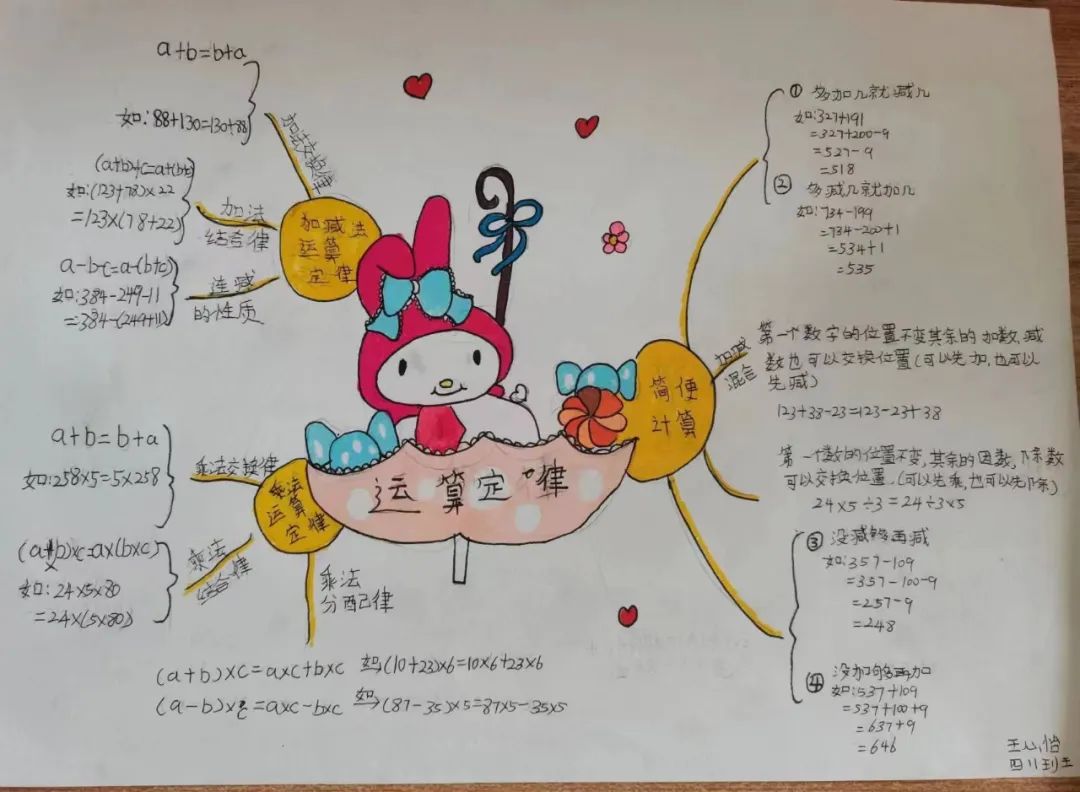 运算定律
加减法
运算
定律
加法交换律
a+b=b+a
如:88+130=130+88
加法
结合律
(a+b)+c=a+(b+c)
如:(123+78)×22
=123×(78+22)
连减
的性质
a-b-c=a-(b+c)
如:384-249-11
=384-(249+11)
乘法
运算
定律
乘法交换律
a+b=b+a
如:258×5=5×258
乘法
结合律
(a×b)×c=a×(b×c)
如:24×5×80
=24×(5×80)
乘法
分配律
(a+b)×c=a×c+b×c 如(10+23)×6=10×6+23×6
(a-b)×c=a×c-b×c 如(87-35)×5=87×5-35×5
简便
计算
① 多加几就减几
如:327+191
=327+200-9
=527-9
=518
② 多减几就加几
如:734-199
=734-200+1
=534+1
=535
加减
混合
第一个数字的位置不变其余的加数,减
数也可以交换位置(可以先加,也可以
先减)
123+38-23=123-23+38
第一个数的位置不变,其余的因数,除数
可以交换位置.(可以先乘,也可以先除)
24×5÷3=24÷3×5
③ 没减够再减
如:357-109
=357-100-9
=257-9
=248
④ 没加够再加
如:537+109
=537+100+9
=637+9
=646
王心怡